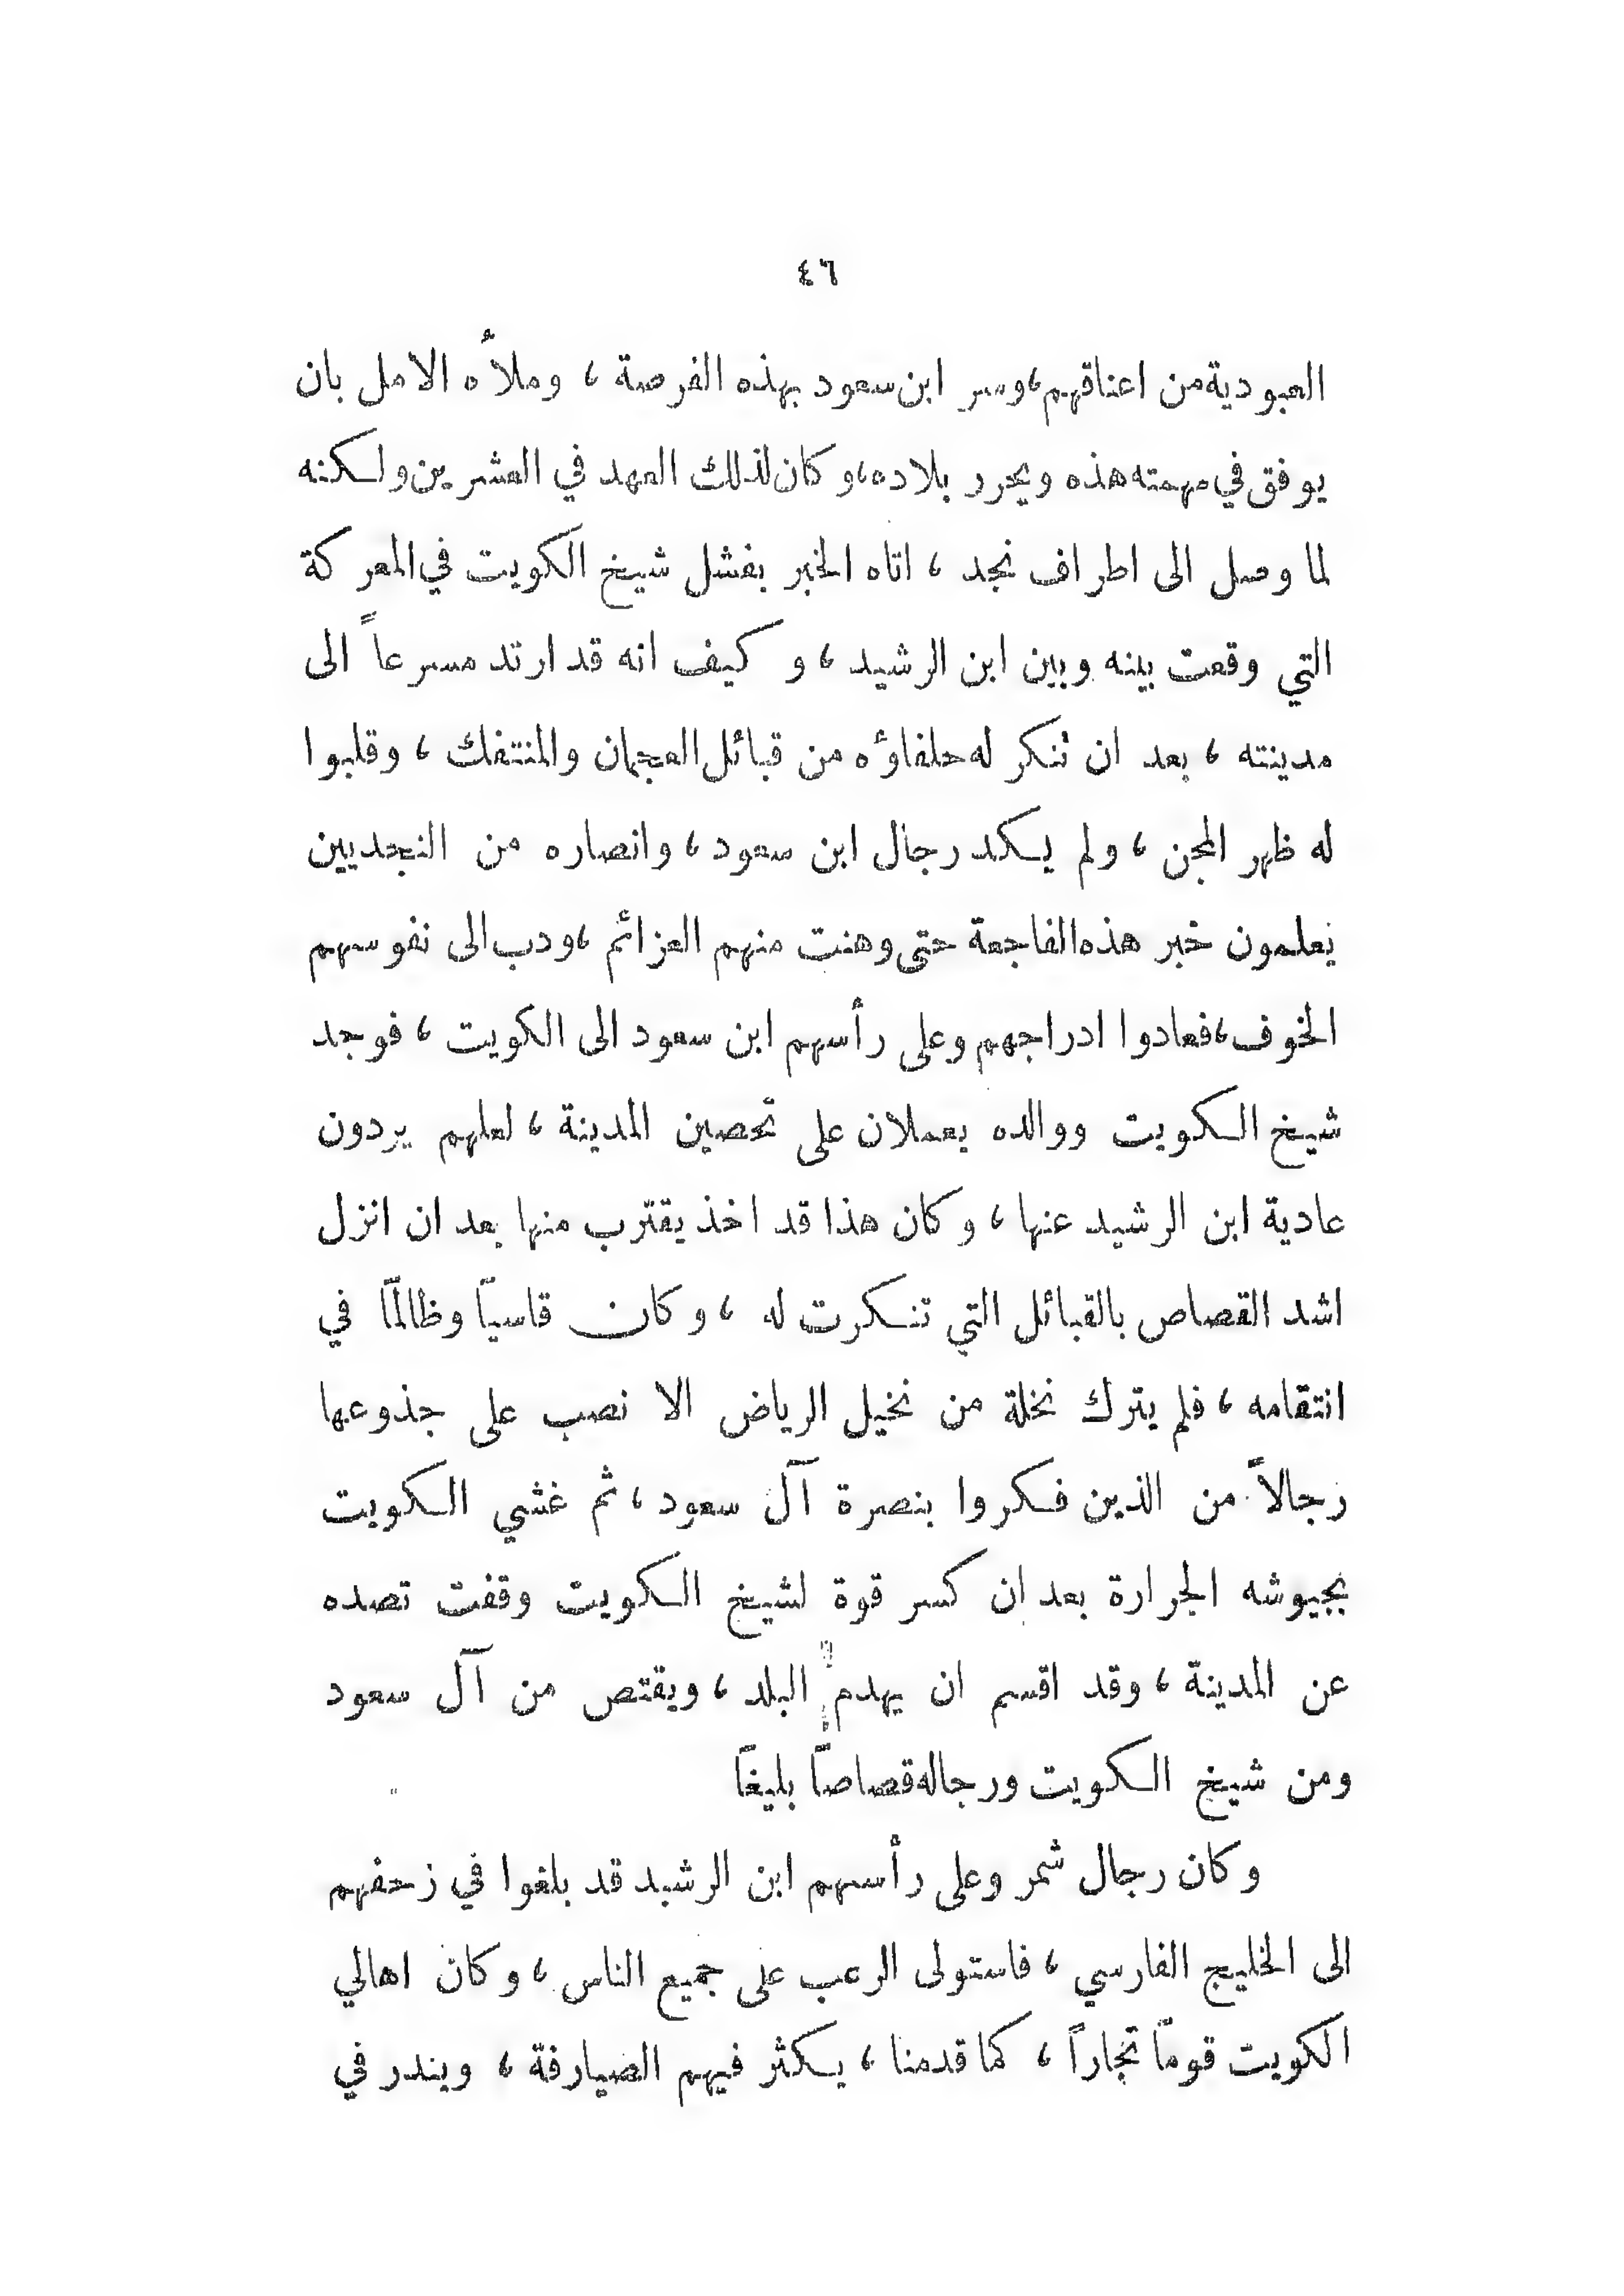 ٤٦
العبودية من اعناقهم، وسر ابن سعود بهذه الفرصة ، وملأه الامل بان
يوفق في مهمته هذه ويحرر بلاده، وكان لذلك العهد في العشرين ولكنه
لما وصل الى اطراف نجد ، اتاه الخبر بفشل شيخ الكويت في المعركة
التي وقعت بينه وبين ابن الرشيد ، وكيف انه قد ارتد مسرعاً الى
مدينته ، بعد ان تنكر له حلفاؤه من قبائل العجمان والمنتفك ، وقلبوا
له ظهر المجن ، ولم يكد رجال ابن سعود ، وانصاره من النجديين
يعلمون خبر هذه الفاجعة حتى وهنت منهم العزائم ، ودب الى نفوسهم
الخوف ، فعادوا ادراجهم وعلى رأسهم ابن سعود الى الكويت ، فوجد
شيخ الكويت ووالده يعملان على تحصين المدينة ، لعلهم يردون
عادية ابن الرشيد عنها ، وكان هذا قد اخذ يقترب منها بعد ان انزل
اشد القصاص بالقبائل التي تنكرت له ، وكان قاسياً وظالماً في
انتقامه ، فلم يترك نخلة من نخيل الرياض الا نصب على جذوعها
رجالاً من الذين فكروا بنصرة آل سعود ، ثم غشي الكويت
بجيوشه الجرارة بعد ان كسر قوة لشيخ الكويت وقفت تصده
عن المدينة ، وقد اقسم ان يهدم البلد ، ويقتص من آل سعود
ومن شيخ الكويت ورجاله قصاصاً بليغاً
وكان رجال شمر وعلى رأسهم ابن الرشيد قد بلغوا في زحفهم
الى الخليج الفارسي ، فاستولى الرعب على جميع الناس ، وكان اهالي
الكويت قوماً تجاراً ، كما قدمنا ، يكثر فيهم الصيارفة ، ويندر في